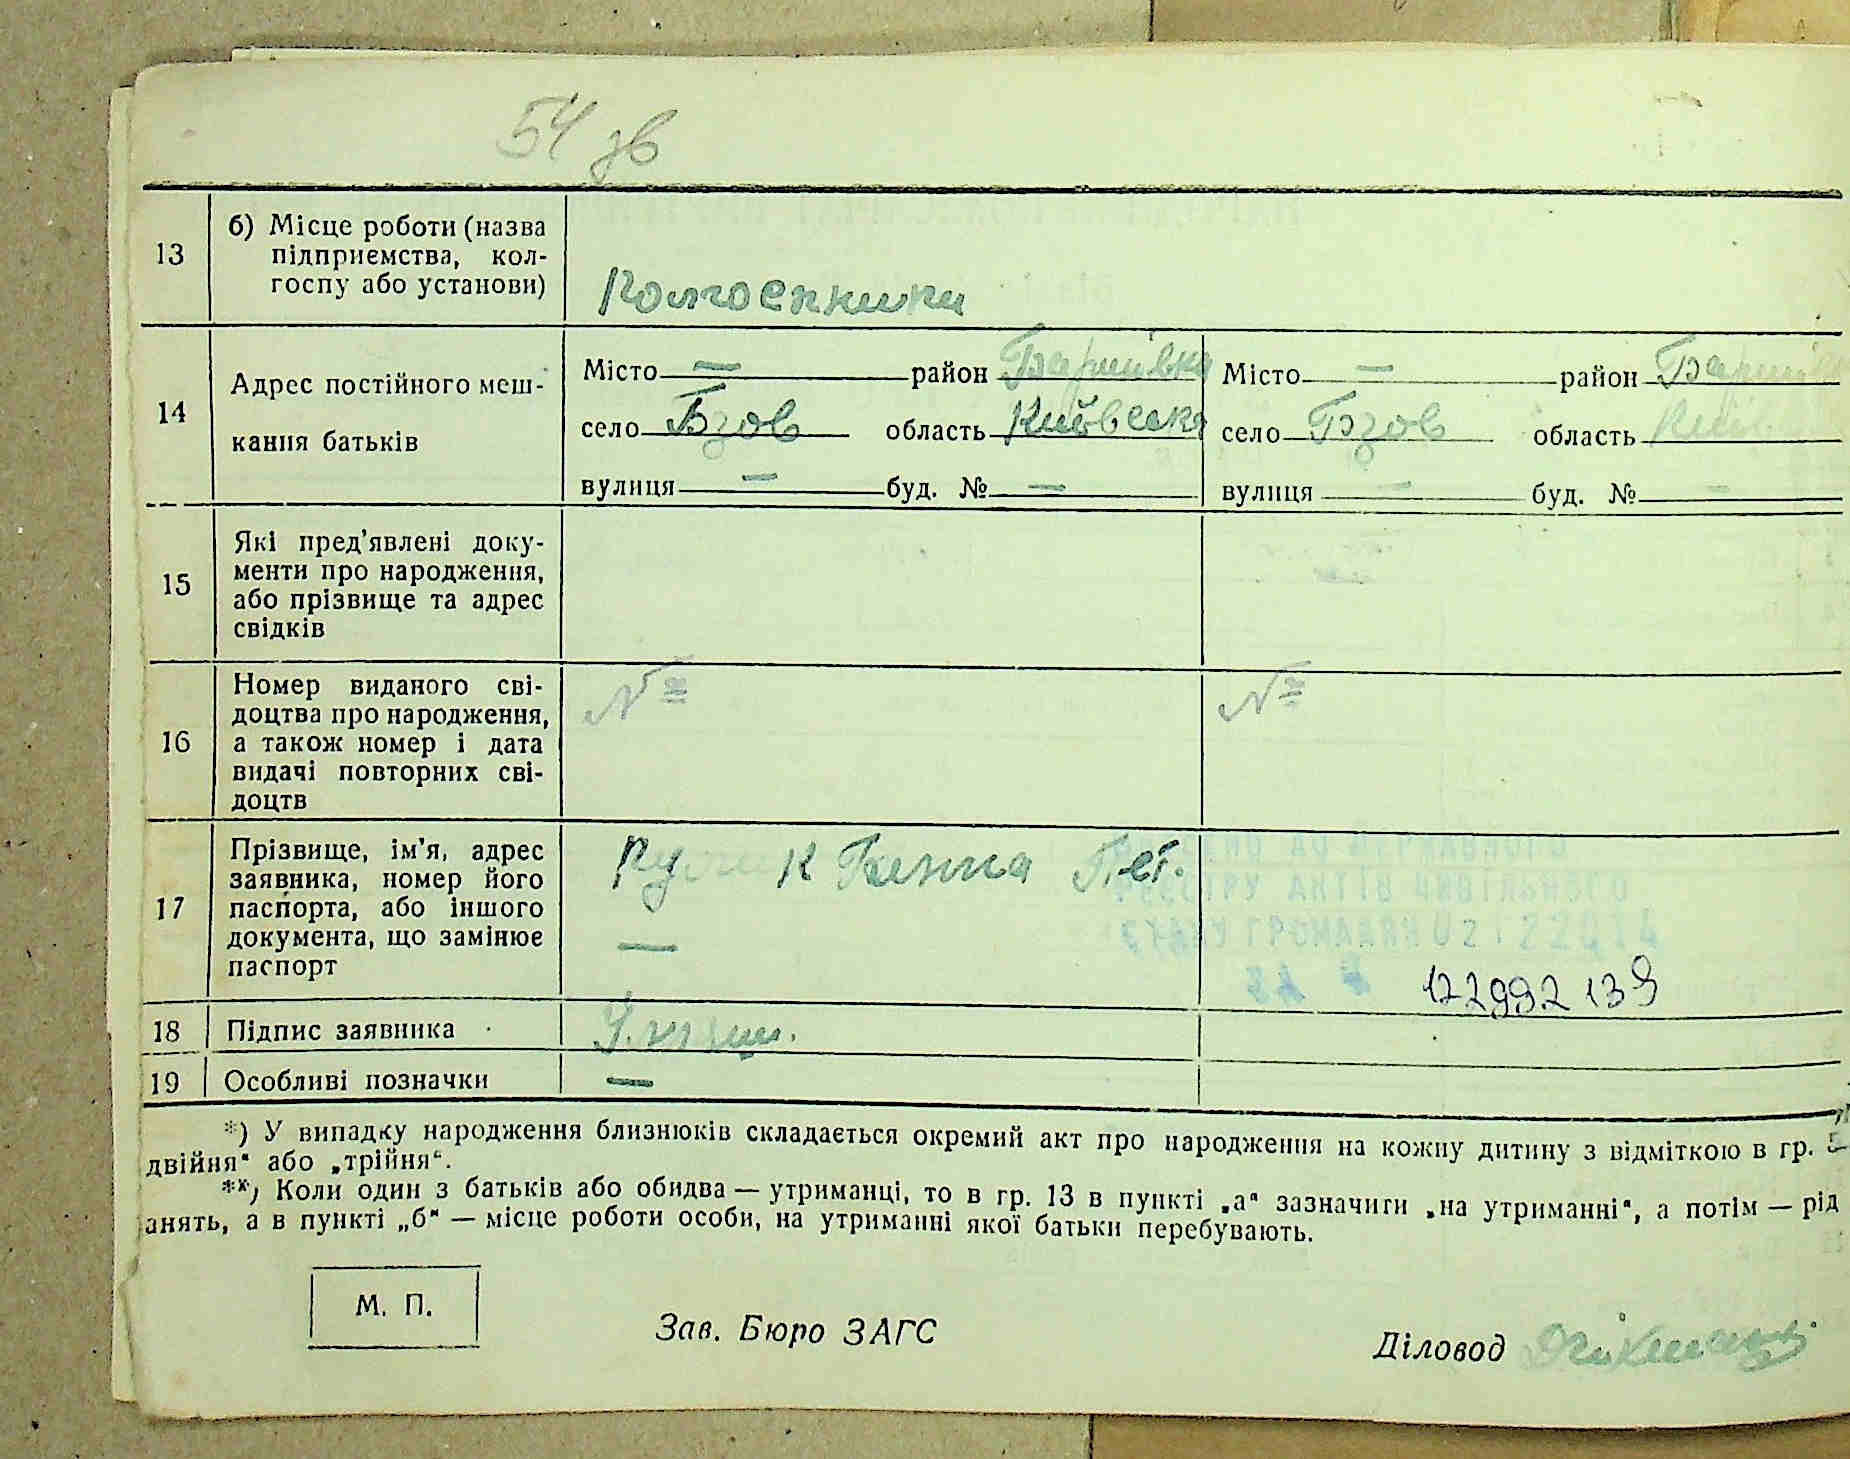 54 зв
13
б) Місце роботи (назва
підприємства, кол-
госпу або установи)
Колгоспники
14
Адрес постійного меш-
кання батьків
Місто — район Баришівка
село Бзов область Київська
вулиця — буд. № —
Місто — район Бариші
село Бзов область Київ
вулиця — буд. № —
15
Які пред'явлені доку-
менти про народження,
або прізвище та адрес
свідків
16
Номер виданого сві-
доцтва про народження,
а також номер і дата
видачі повторних сві-
доцтв
№
№
17
Прізвище, ім'я, адрес
заявника, номер його
паспорта, або іншого
документа, що замінює
паспорт
Ганна Пет.
—
ДО ДЕРЖАВНОГО
РЕЄСТРУ АКТІВ ЦИВІЛЬНОГО
СТАНУ ГРОМАДЯН
122992139
18
Підпис заявника
19
Особливі позначки
—
*) У випадку народження близнюків складається окремий акт про народження на кожну дитину з відміткою в гр. 5
двійня" або „трійня".
**) Коли один з батьків або обидва — утриманці, то в гр. 13 в пункті „а" зазначити „на утриманні", а потім — рід
анять, а в пункті „б" — місце роботи особи, на утриманні якої батьки перебувають.
М. П.
Зав. Бюро ЗАГС
Діловод